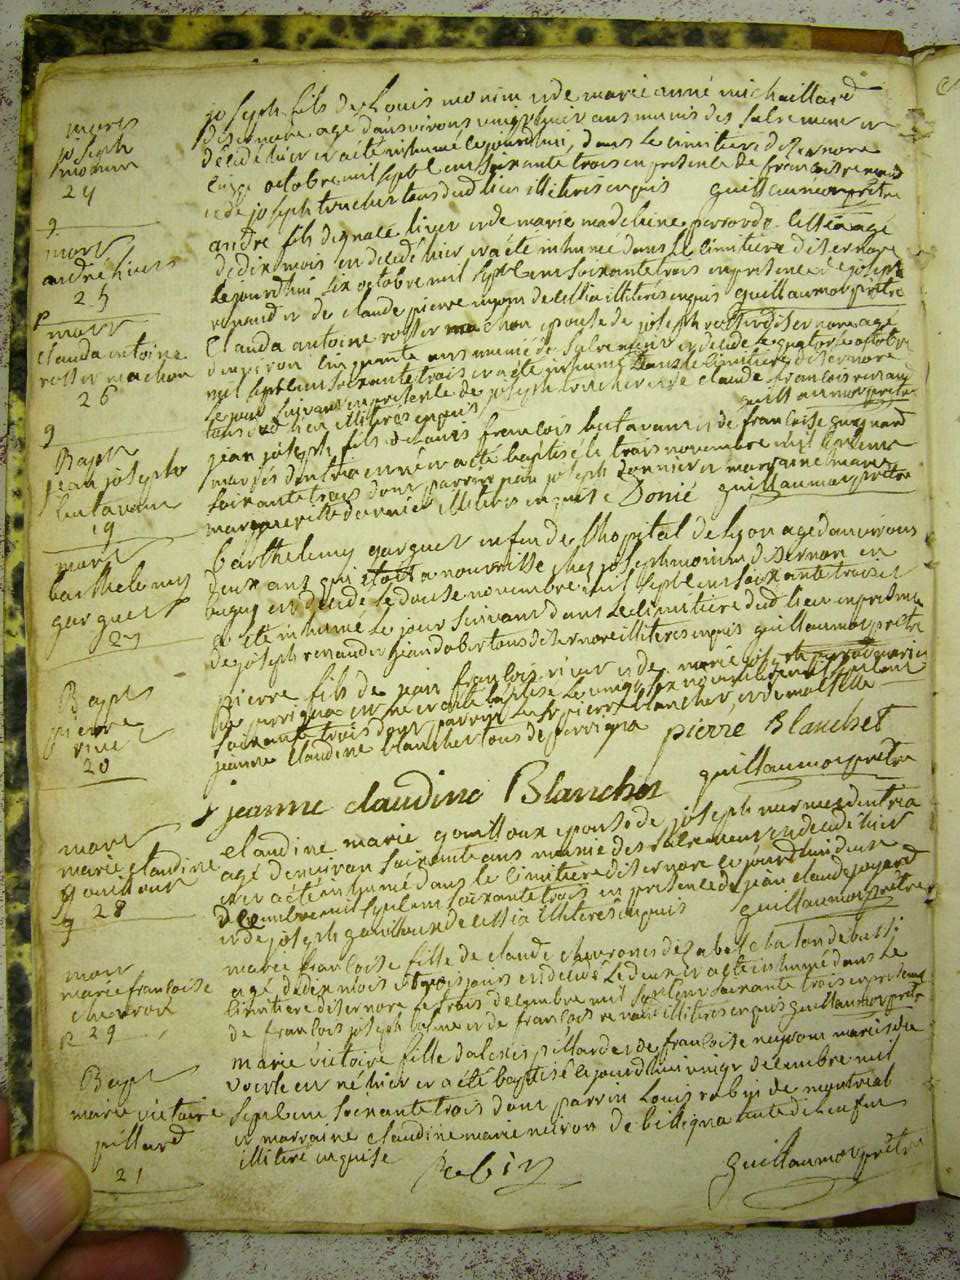 mort
joseph
monin
24
joseph fils de Louis monin et de marie anne michaillard
de sernore agé d'anvirons vingt ans munis des sacremens en
décédé hier et a été inhumé le jourdhui, dans le cimitiere de sernore
octobre mil sept cens soixante trois en presence de francois renaud
et de joseph truchet tous dud lieu illiterés enquis guillaumot prêtre
mort
andré
25
andré fils d et de marie madeleine
de dix mois en decedé hier et a été inhumé dans le cimitiere de sernore
le jourdhui six octobre mil sept cens soixante trois en presence de joseph
renaud et de claude pierre illiterés enquis guillaumot prêtre
p mort
clauda antoine
rosset machon
26
Clauda antoine rosset machon epouse de joseph rosset de sernore agé
d'environ cinquante ans munie de sacremens en decedé le quatorze octobre
mil sept cens soixante trois et a été inhumé dans le cimitiere de sernore
le jour suivant en presence de joseph truchet et de claude francois renaud
tous dud lieu illiteres enquis guillaumot prêtre
Bapt
jean joseph
buntavant
19
jean joseph fils de Louis francois buntavant et de francoise guignard
mariés dentria en né et a été baptisé le trois novembre mil sept cens
soixante trois dont parrein jean joseph donnier et marraine marie
margueritte donnier illiteres enquis Donié guillaumot prêtre
mort
barthelemy
garguet
27
barthelemy garguet enfan de l'hopital de Lyon agé d'anvirons
deux ans qui etoit a nourrisse chez joseph monin de Sernon en
bugey en decedé le douse novembre mil sept cens soixante trois et
a été inhumé le jour suivant dans le cimitiere dud lieu en presence
de joseph renaud et jean dobert tous de sernore illiteres enquis guillaumot prêtre
Bapt
pierre
vuiet
20
pierre fils de jean françois et de marie
de perrigna en né et a été baptisé le vingt six novembre mil sept cens
soixante trois dont parrein le sr pierre blanchet, et demoiselle
jeanne claudine blanchet tous de perrigna pierre Blanchet
jeanne claudine Blanchet guillaumot prêtre
mort
marie claudine
gouilloux
28
claudine marie gouilloux epouse de joseph mermet dentria
agé d'environ soixante ans munie des sacremens en decedé hier
et a été inhumé dans le cimitiere de sernore le jourdhui deux
decembre mil sept cens soixante trois en presence de jean claude
et de joseph gouilloux de lissia illiterés enquis guillaumot prêtre
mort
marie francoise
chevron
p 29
marie francoise fille de claude chevron et d'izabel chaton de bussi
agé de dix mois et trois jours en decedé le deux et a été inhumé dans le
cimitiere de sernore le trois decembre mil sept cens soixante trois en presence
de francois joseph et de francois renaud illiteres enquis guillaumot prêtre
Bapt
marie victoire
pillard
21
marie victoire fille d'alexis pillard et de francoise mariés de
en né hier et a été baptisé le jourdhui vingt decembre mil
sept cens soixante trois dont parrin Louis robin de montréal
et marraine claudine marie neiron de billigna tante de l'enfan
illiteré enquise Robin guillaumot prêtre